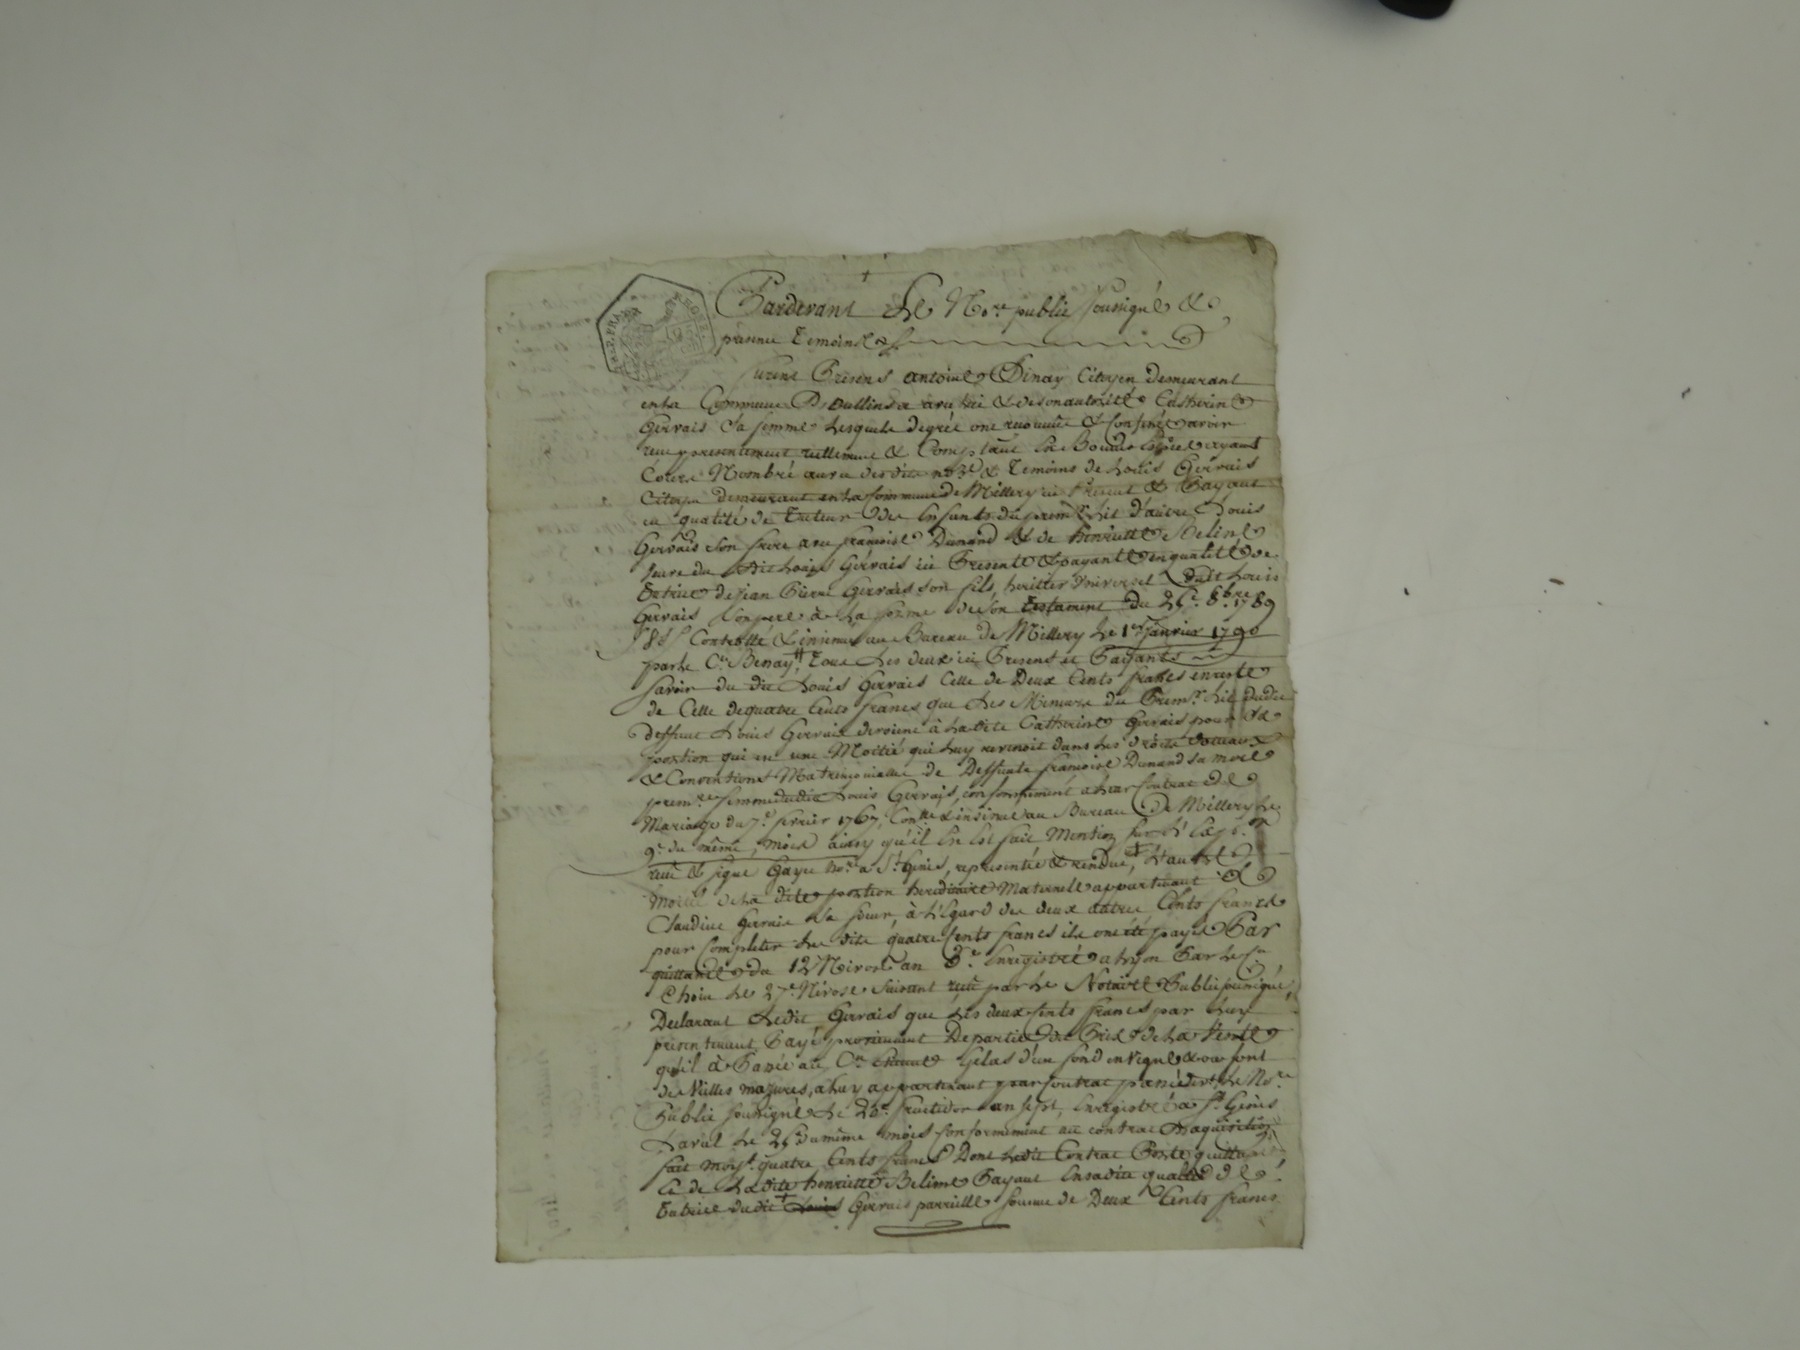 RÉP. FRA. RHONE.
Pardevant Le No.re public soussigné &
présence Temoins &
furent Presens antoine Dinay Citoyen demeurant
en la Commune D'oullins & de son autorité Catherine
Gervais Sa femme Lesquels degrée ont reconnu & confessé avoir
reçu presentement reellement & Comptant En Bonnes Espèces ayant
Cours Nombré au vu des dits no.re & Temoins de Louis Gervais
Citoyen demeurant en la Commune de Millery ici Present & Payant
en qualité de Tuteur des Enfants du premier Lit d'autre Louis
Gervais Son frere avec françoise Dunand & de henriette Beline
veuve du dit Louis Gervais ici Presente & payante en qualité de
Tutrice de jean Pierre Gervais son fils, heritier Universel dudit Louis
Gervais Son pere à La forme de son testament du 25.e 8.bre 1789
Controllé & insinué au Bureau de Millery Le 1.er Janvier 1790
par le C.n Benay, Tous Les deux ici Presens et Payants
savoir du dit Louis Gervais Celle de Deux Cents francs en reste
de Celle de quatre Cents francs que Les Mineurs du Prem.r Lit dudit
deffunt Louis Gervais devoient à La dite Catherine Gervais pour Sa
portion qui en une Moitié qui Luy revenoit dans Les droits dotaux
& Conventions Matrimonialles de Deffunte francoise Dunand Sa mere
prem.re femme dudit Louis Gervais, conformément a Leur Contrat de
Mariage du 7.e fevrier 1767, Contr.llé & insinué au Bureau de Millery Le
9.e du même mois ainsy qu'il En Est fait Mention sur L'Exp.on
reçu & signé Gayet no.re a S.t Genis, representée & rendue, L'autre
Moitié de La dite portion hereditaire Maternelle appartenant a
Claudine Gervais Sa sœur, à L'égard des deux autres Cents francs
pour Completer Les dits quatre Cents francs ils ont été payé Par
quittance du 12 Nivose an 8.e Enregistré a Lyon Par Le C.n
Choin Le 27.e Nivose suivant reçu par Le Notaire Public soussigné,
Declarant Ledit Gervais que Les deux Cents francs par Luy
présentement Payé proviennent De partie du Prix de La Vente
qu'il à Passé au C.n Gelas d'un fond en Vigne & ou sont
de Vielles mazures, a Luy appartenant par Contrat passé devt. Le No.re
Public soussigné Le 22.e fructidor an sept, Enregistré a S.t Genis
Laval Le 25 du même mois Conformement au contrat D'aquisition
fait moy.t quatre Cents francs Dont Ledit Contrat Porte quittance
& de La dite henriette Beline Payant En sadite qualité de
Tutrice dudit Louis Gervais parreille somme de Deux Cents francs